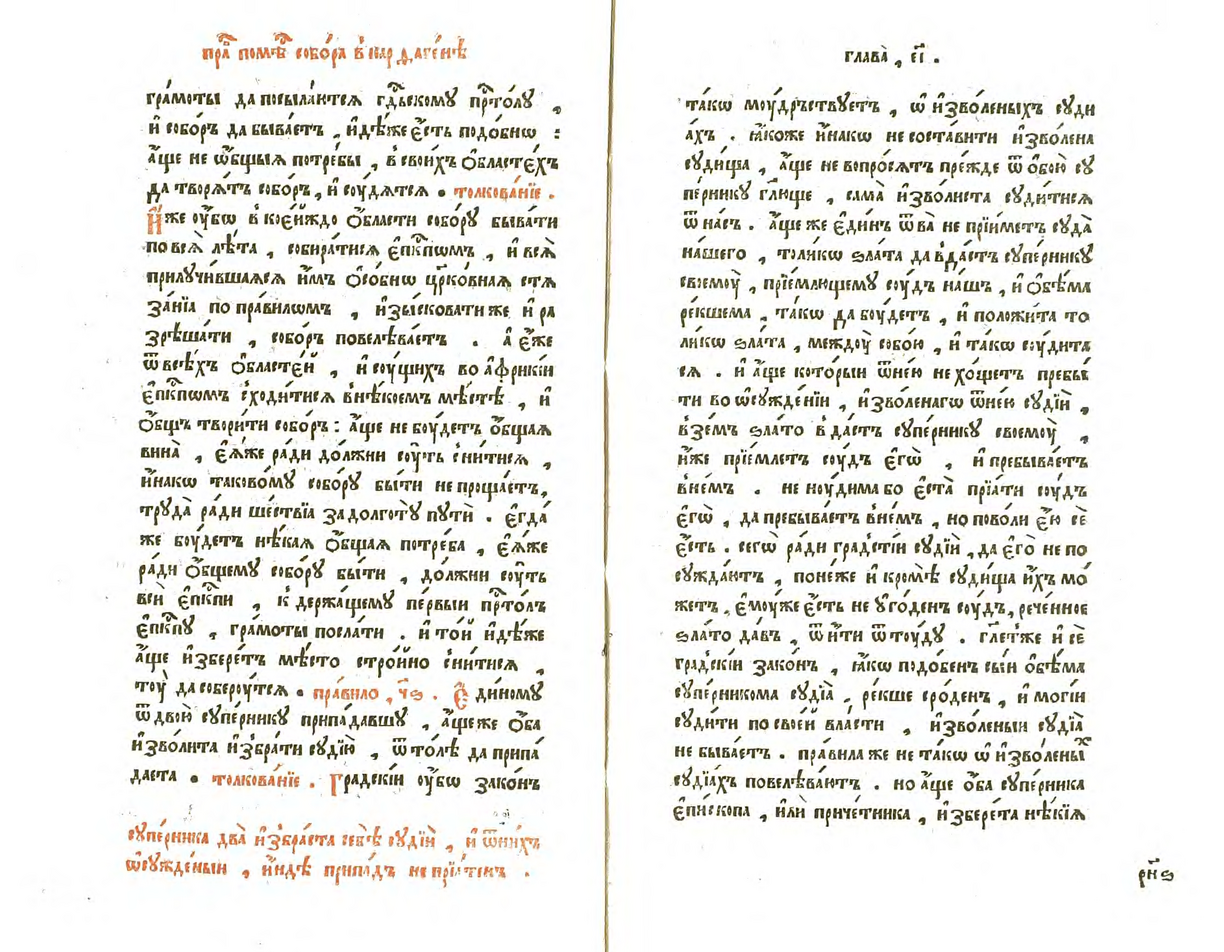 прⷶ҇ помѣⷭ҇ собо́ра в̾ карѳаге́нѣ
гра́моты да посыла́ютсѧ гдⷭ҇ьскому прⷭ҇то́лу ,
и҆ собо́ръ да быва́етъ , и҆дѣ́же є҆́сть подо́бнѡ :
а҆́ще не ѡ҆́бщыѧ потре́бы , в̾ свои́хъ ѻ҆́бластехъ
да творѧ́тъ собо́ръ , и҆ соу́дѧтсѧ . толкова́нїе .
И҆́же ᲂу҆́бѡ в̾ коє́йждо ѻ҆́бласти собо́ру быва́ти
по всѧ̀ лѣ́та , собира́тисѧ є҆пⷭ҇кпѡмъ , и҆ всѧ̀
прилучи́вшаѧсѧ и҆́мъ ѻ҆со́бнѡ цр҃ко́внаѧ стѧ
за́нїѧ по пра́вилѡмъ , и҆зы́сковати же и҆ ра
зрѣша́ти , собо́ръ повелѣва́етъ . а҆ є҆́же
ѿ всѣ́хъ ѻ҆бласте́й , и҆ соу́щихъ во а҆́фрикїи
є҆пⷭ҇кпѡмъ сходи́тисѧ в̾ нѣ́коемъ мѣ́стѣ , и҆
ѻ҆́бщъ твори́ти собо́ръ : а҆́ще не боу́детъ ѻ҆́бщаѧ
вина̀ , є҆ѧ́же ра́ди до́лжни соу́ть сни́тисѧ ,
и҆́накѡ таково́му собо́ру бы́ти не проща́етъ ,
труда̀ ра́ди ше́ствїѧ за долготу̀ путѝ . є҆гда́
же боу́детъ нѣ́каѧ ѻ҆́бщаѧ потре́ба , є҆ѧ́же
ра́ди ѻ҆́бщему собо́ру бы́ти , до́лжни соу́ть
всѝ є҆пⷭ҇кпи , к̾ держа́щему пе́рвыи прⷭ҇то́лъ
є҆пⷭ҇кпу , гра́моты посла́ти . и҆ то́й и҆дѣ́же
а҆́ще и҆збере́тъ мѣ́сто стро́йно сни́тисѧ ,
тоу̀ да собероу́тсѧ . пра́вило , ч҃ѕ . Є҆ди́ному
ѿ двою̀ супе́рнику припа́давшу , а҆́ще же ѻ҆́ба
и҆зво́лита и҆збра́ти судїю̀ , ѿто́лѣ да припа́
даета . толкова́нїе . Гра́дскїи ᲂу҆́бѡ зако́нъ
супе́рника два̀ и҆збра́ста себѣ̀ судїи̑ , и҆ ѿ ни́хъ
ѡ҆сужде́ныи , и҆́ндѣ припа́дъ не прїѧ́тенъ .
глава̀ , є҃і .
та́кѡ моу́дръствуетъ , ѡ҆ и҆зво́леныхъ суди
а́хъ . ꙗ҆́коже и҆́накѡ не соста́вити и҆зво́лена
суди́ща , а҆́ще не вопро́сѧтъ пре́жде ѿ ѻ҆бою̀ су
пе́рнику гл҃юще , сама̀ и҆зво́листа суди́тисѧ
ѿ на́съ . а҆́ще же є҆ди́нъ ѿ ва̀ не прїи́метъ суда̀
на́шего , толи́кѡ ѕла́та да в̾да́стъ супе́рнику
своемоу̀ , прїе́млющему соу́дъ на́шъ , и҆ ѻ҆бѣ́ма
ре́кшема , та́кѡ да боу́детъ , и҆ положи́та то
ли́кѡ ѕла́та , междоу̀ собо́ю , и҆ та́кѡ соу́дита
сѧ . и҆ а҆́ще кото́рыи ѿ не́ю не хо́щетъ пребы́
ти во ѡ҆сужде́нїи , и҆зво́ленагѡ ѿ не́ю судїи̑ ,
взе́мъ ѕла́то в̾да́стъ супе́рнику своемоу̀ ,
и҆́же прїе́млетъ соу́дъ є҆гѡ̀ , и҆ пребыва́етъ
в̾ не́мъ . не ноу́дима бо є҆ста̀ прїѧ́ти соу́дъ
є҆гѡ̀ , да пребыва́етъ в̾ не́мъ , но по во́ли є҆ю̀ се́
є҆́сть . сегѡ̀ ра́ди гра́дстїи судїи̑ , да є҆го̀ не по
сужда́ютъ , поне́же и҆ кромѣ̀ суди́ща и҆́хъ мо́
жетъ , є҆моу́же є҆́сть не ᲂу҆го́денъ соу́дъ , рече́нное
ѕла́то да́въ , ѿи҆тѝ ѿтоу́ду . гл҃етже и҆ се́
гра́дскїи зако́нъ , ꙗ҆́кѡ подо́бенъ сы́и ѻ҆бѣ́ма
супе́рникома судїа̀ , ре́кше сро́денъ , и҆ моги́и
суди́ти по свое́й вла́сти , и҆зво́леныи судїа̀
не быва́етъ . пра́вила же не та́кѡ ѡ҆ и҆зво́леныⷯ
судїа́хъ повелѣва́ютъ . но а҆́ще ѻ҆́ба супе́рника
є҆пи́скопа , и҆лѝ приче́тника , и҆збере́та нѣ́кїѧ
рн҃ѕ